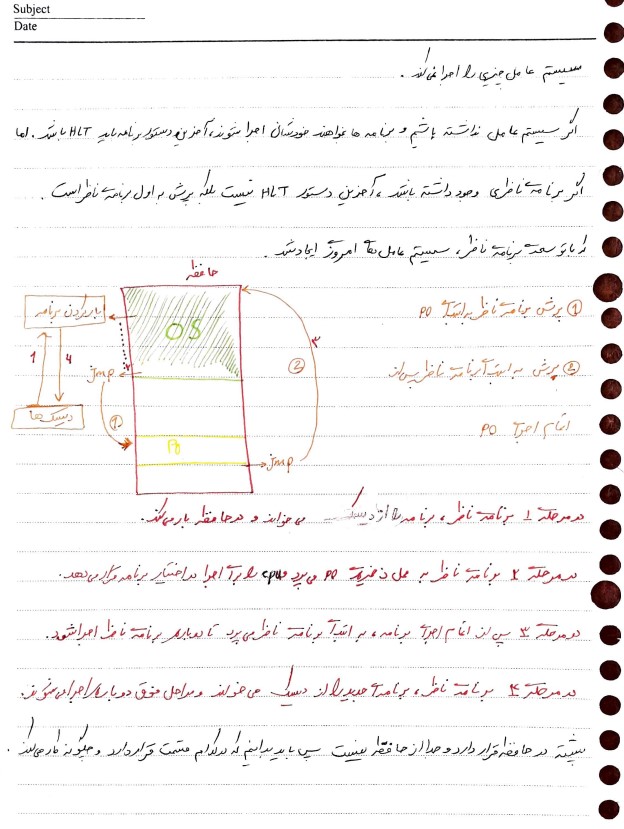 Subject
Date
سیستم عامل چیزی را اجرا نمی‌کند .
اگر سیستم عامل نداشته باشیم و برنامه ها بخواهند خودشان اجرا شوند، آخرین دستور برنامه باید HLT باشد . اما
اگر برنامه ناظری وجود داشته باشد ، آخرین دستور HLT نیست بلکه پرش به اول برنامه ناظر است .
که با توسعه برنامه ناظر ، سیستم عامل های امروزی ایجاد شد .
حافظه
بار کردن برنامه
OS
1
4
jmp
دیسک ها
①
P0
jmp
②
۳
① پرش برنامه ناظر به ابتدای P0
② پرش به ابتدای برنامه ناظر پس از
اتمام اجرای P0
در مرحله 1 برنامه ناظر ، برنامه را از دیسک می خواند و در حافظه بار می‌کند .
در مرحله ۲ برنامه ناظر به محل ذخیره P0 می پرد و cpu را برای اجرا در اختیار برنامه قرار می دهد .
در مرحله ۳ پس از اتمام اجرای برنامه ، به ابتدای برنامه ناظر می پرد تا دوباره برنامه ناظر اجرا شود .
در مرحله ۴ برنامه ناظر ، برنامه جدید را از دیسک می خواند و مراحل فوق دوباره اجرا می شوند .
پشته در حافظه قرار دارد و جدا از حافظه نیست پس باید بدانیم که در کدام قسمت قرار دارد و چگونه کار می‌کند .